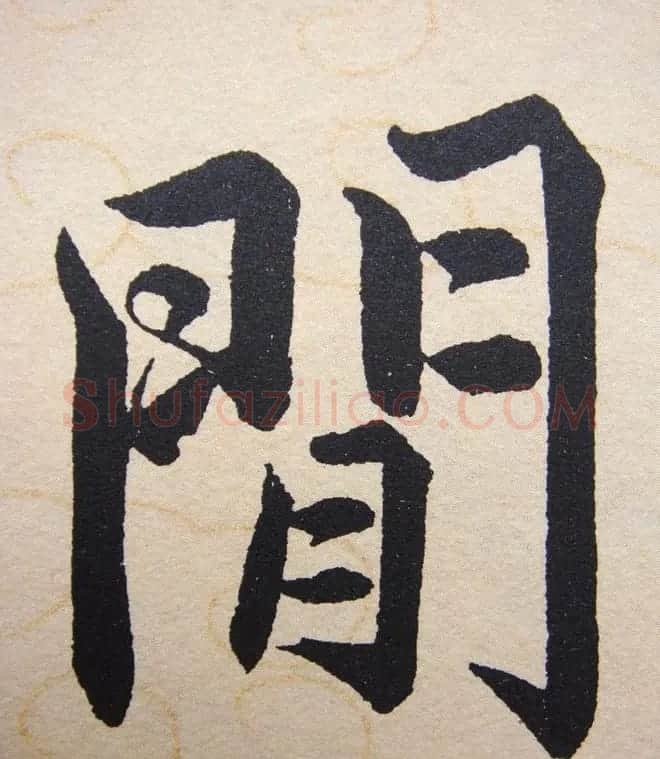 閒
Shufaziliao.COM